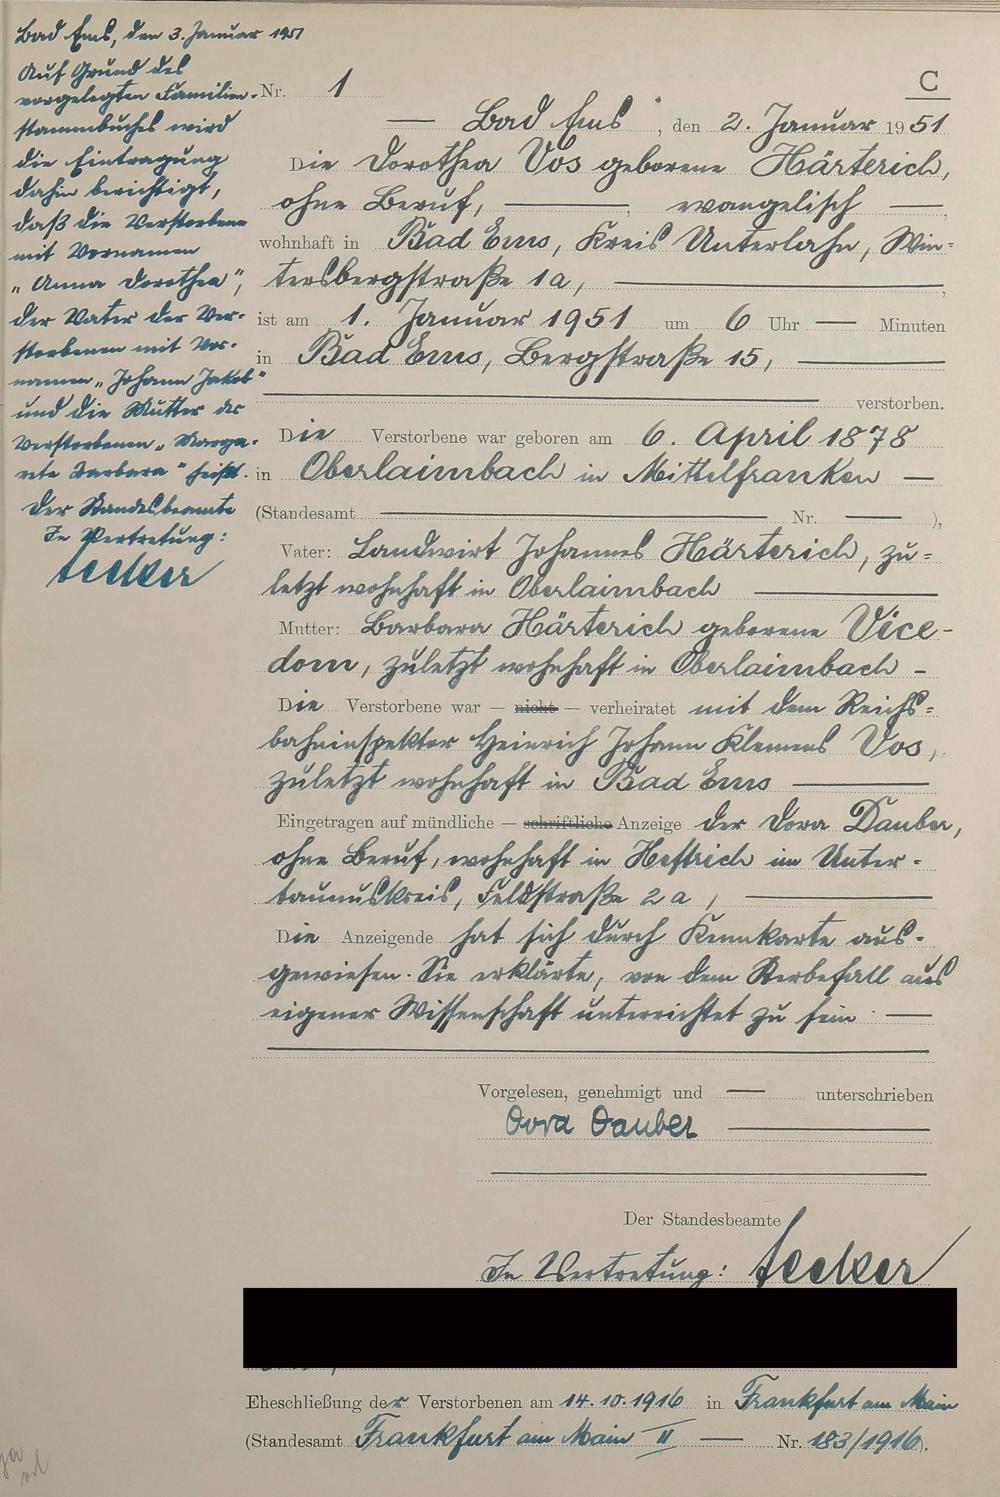 Bad Ems, den 3. Januar 1951
Auf Grund des
vorgelegten Familien-
stammbuches wird
die Eintragung
dahin berichtigt,
daß die Verstorbene
mit Vornamen
„Anna Dorothea",
der Vater der Ver-
storbenen mit Vor-
namen „Johann Jakob"
und die Mutter der
Verstorbenen „Marga-
rete Barbara" heißt.
Der Standesbeamte
In Vertretung:
C
Nr. 1
— Bad Ems, den 2. Januar 1951
Die Dorothea Vos geborene Härterich,
ohne Beruf, —, evangelisch —,
wohnhaft in Bad Ems, Kreis Unterlahn, Win=
tersbergstraße 1a, —,
ist am 1. Januar 1951 um 6 Uhr — Minuten
in Bad Ems, Bergstraße 15, —
— verstorben.
Die Verstorbene war geboren am 6. April 1878
in Oberlaimbach in Mittelfranken —
(Standesamt — Nr. — ),
Vater: Landwirt Johannes Härterich, zu=
letzt wohnhaft in Oberlaimbach —
Mutter: Barbara Härterich geborene Vice-
dom, zuletzt wohnhaft in Oberlaimbach —
Die Verstorbene war — nicht — verheiratet mit dem Reichs=
bahninspektor Heinrich Johann Klemens Vos,
zuletzt wohnhaft in Bad Ems —
Eingetragen auf mündliche — schriftliche Anzeige der Dora Dauber,
ohne Beruf, wohnhaft in Heftrich im Unter-
taunuskreis, Feldstraße 2a, —
Die Anzeigende hat sich durch Kennkarte aus=
gewiesen. Sie erklärte, von dem Sterbefall aus
eigener Wissenschaft unterrichtet zu sein —
Vorgelesen, genehmigt und — unterschrieben
Dora Dauber —
Der Standesbeamte
In Vertretung:
Eheschließung der Verstorbenen am 14.10.1916 in Frankfurt am Main
(Standesamt Frankfurt am Main II — Nr. 183/1916).